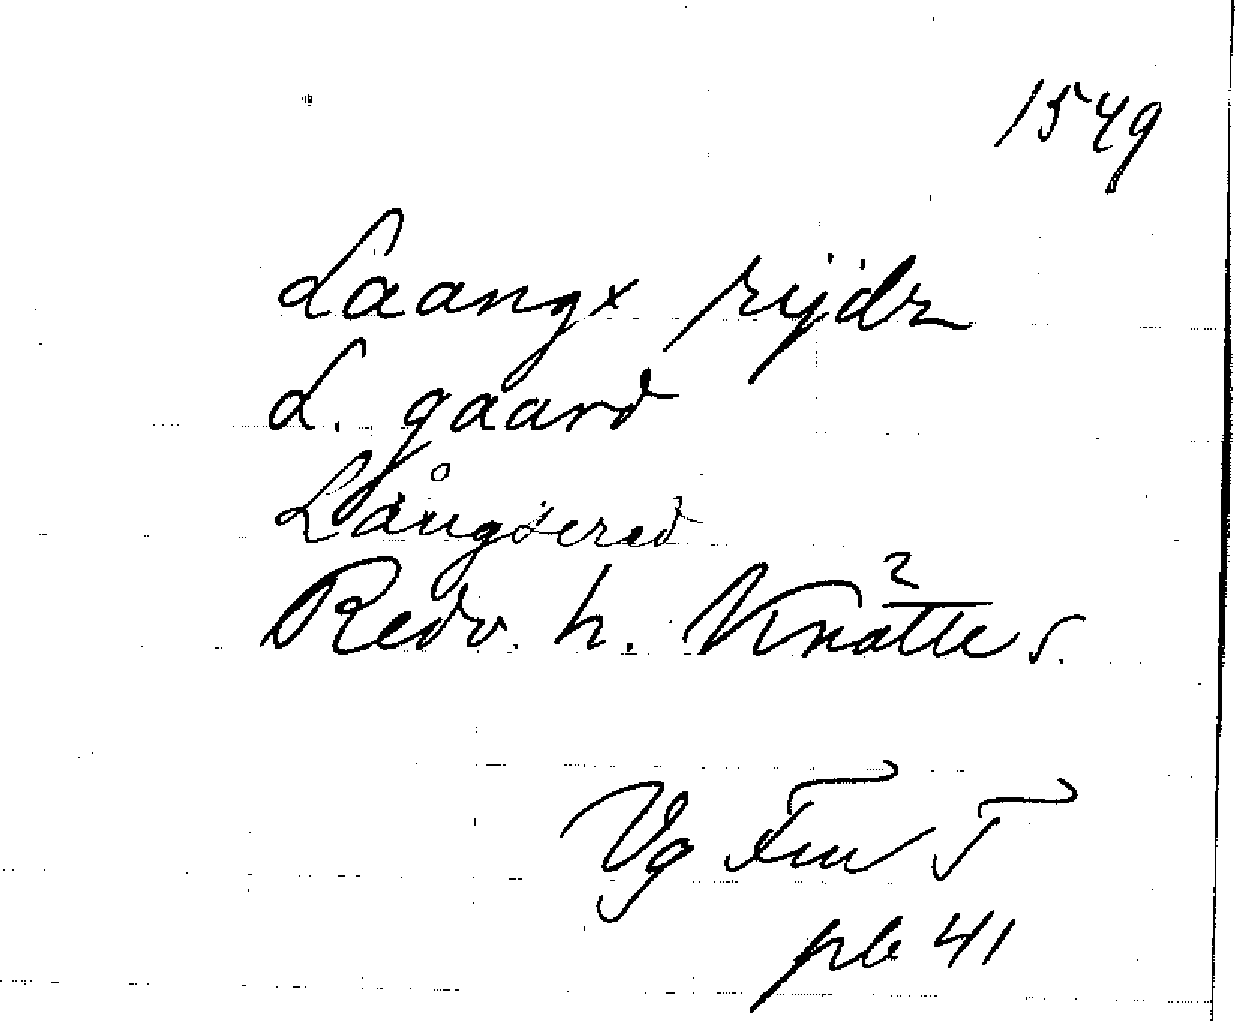 1549
Laangx rijdz
L. gaard
Långserad
Redv. h. Knätte s.
Vg
pb 41